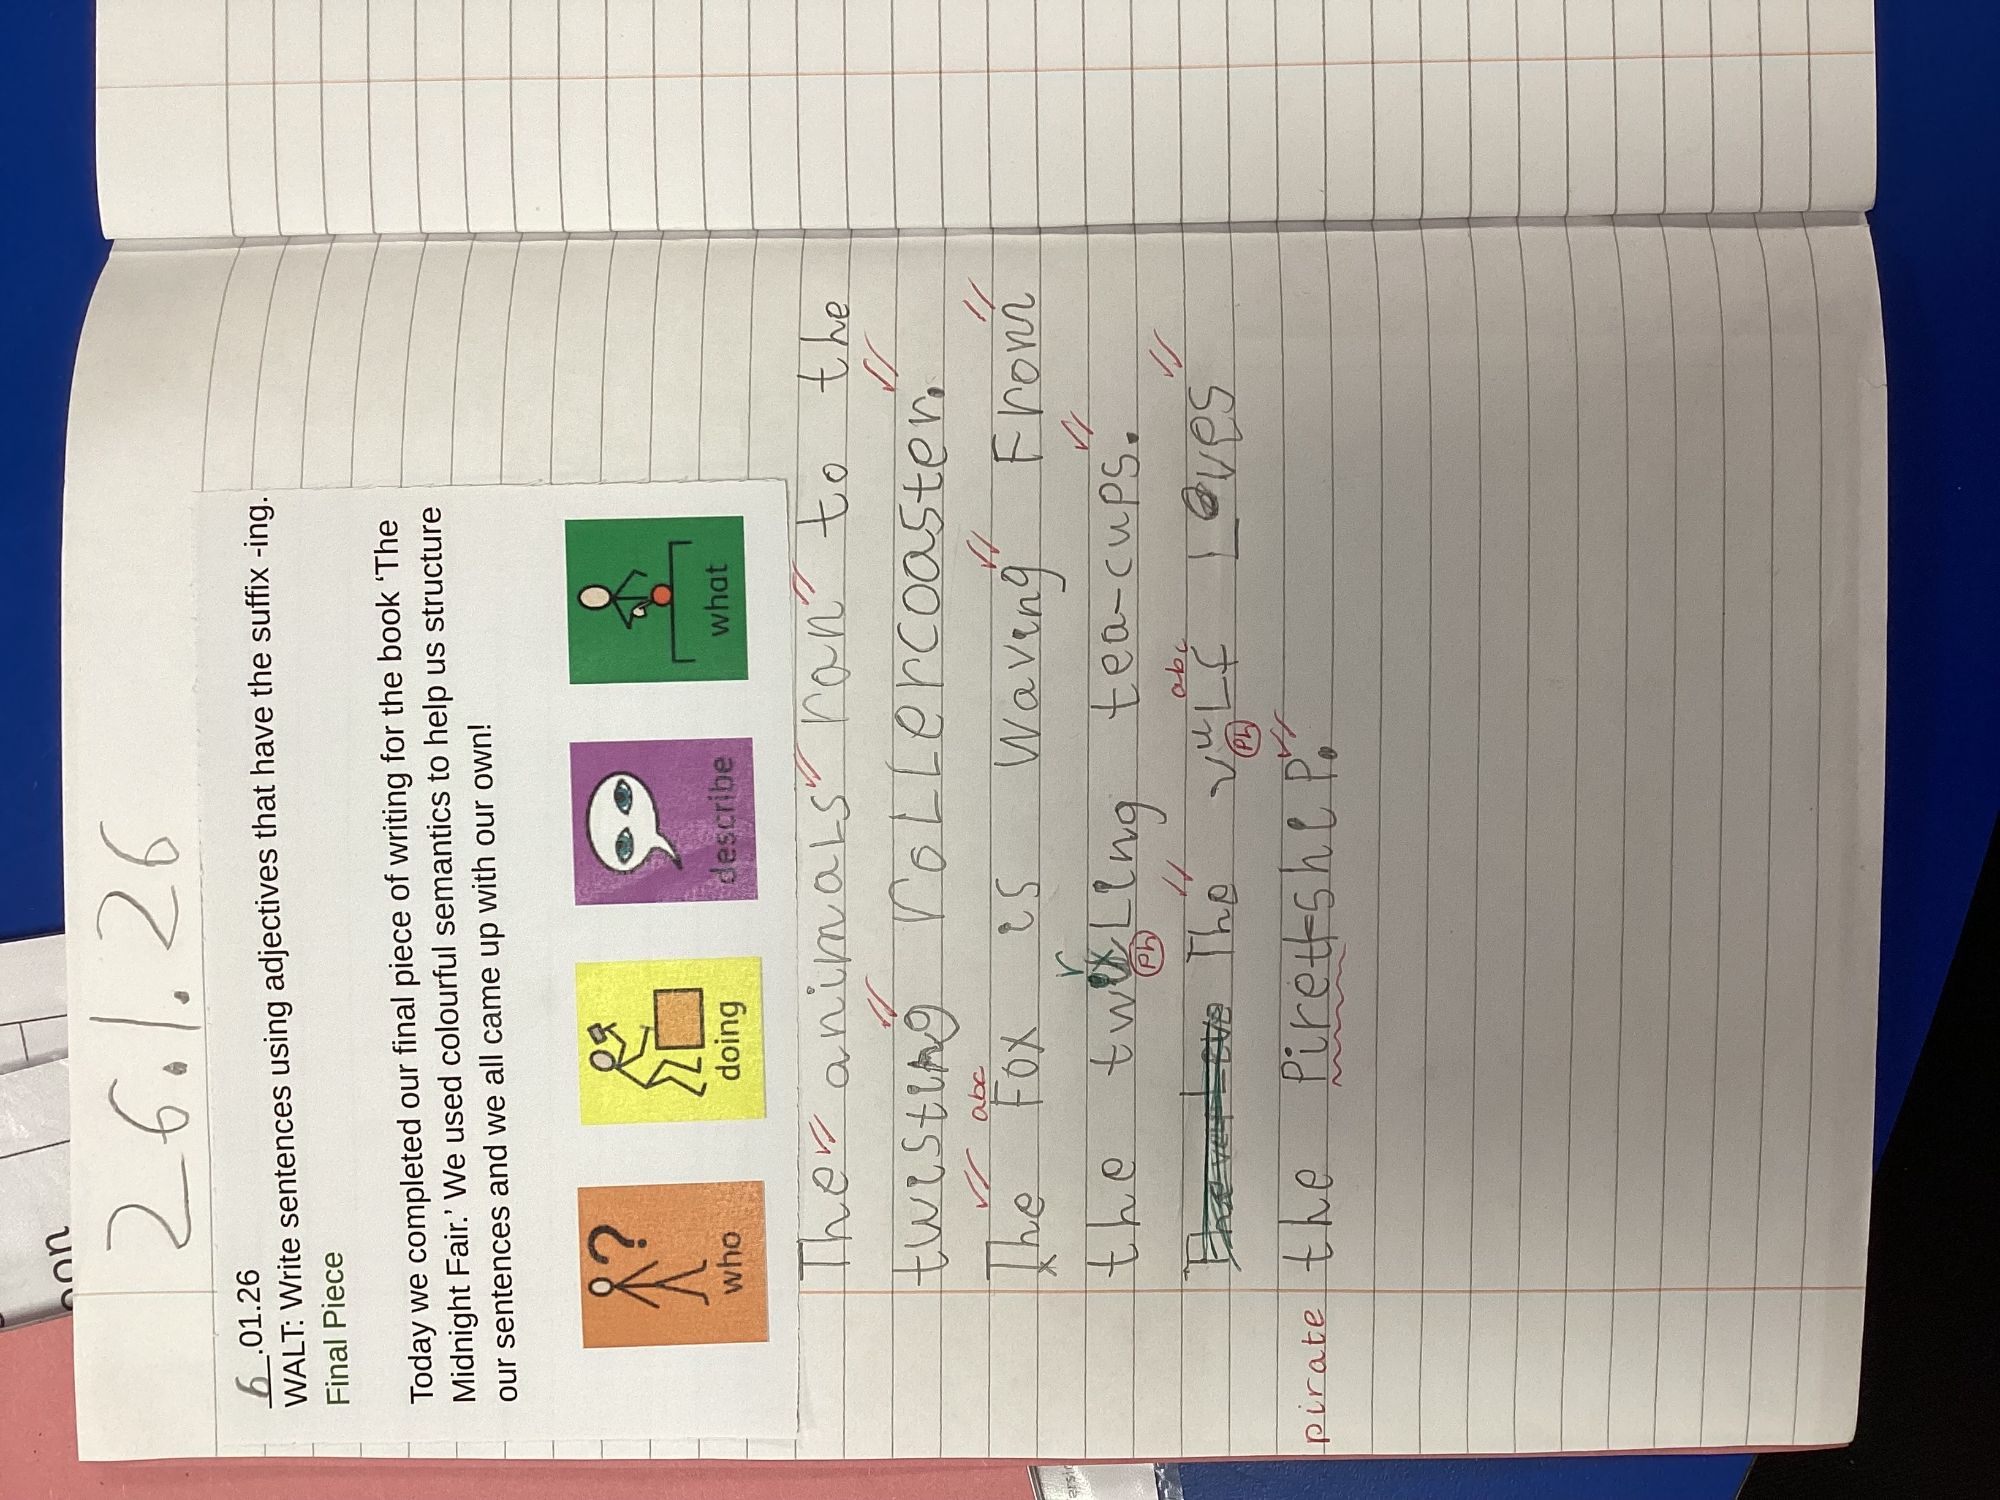 26.1.26
6.01.26
WALT: Write sentences using adjectives that have the suffix -ing.
Final Piece
Today we completed our final piece of writing for the book ‘The
Midnight Fair.’ We used colourful semantics to help us structure
our sentences and we all came up with our own!
who doing describe what
The animals ran to the
twisting rollercoaster.
abc
The Fox is Waving From
r
the twirling tea-cups.
Ph
abc
The vulf Loves
Ph
pirate the Pirett-ship.
oon